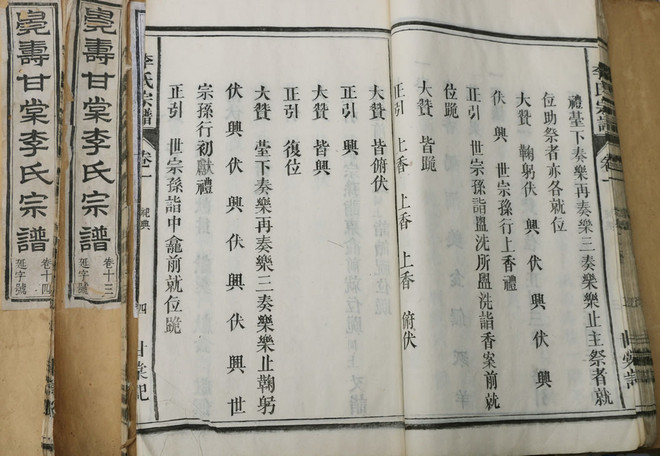 李氏宗譜 卷一
禮堂下奏樂再奏樂三奏樂樂止主祭者就
位助祭者亦各就位
大贊 鞠躬伏 興 伏 興 伏 興 引
伏 興 世宗孫行上香禮
正引 世宗孫詣盥洗所盥洗詣香案前就
位跪
大贊 皆跪
正引 上香 上香 上香 俯伏
大贊 皆俯伏
正引 興
大贊 皆興
正引 復位
大贊 堂下奏樂再奏樂三奏樂樂止鞠躬
伏 興 伏 興 伏 興 伏 興 世
宗孫行初獻禮
正引 世宗孫詣中龕前就位跪
李氏宗譜 卷一 祀典 四 甘棠記
壽甘棠李氏宗譜
卷十三
延字號
壽甘棠李氏宗譜
卷十四
延字號